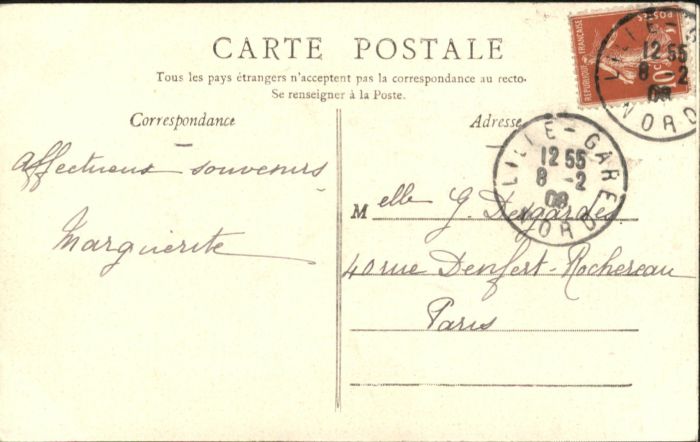 CARTE POSTALE
Tous les pays étrangers n'acceptent pas la correspondance au recto-
Se renseigner à la Poste.
Correspondance
Adresse
Affectueux souvenirs
Marguerite
Melle G. Desgardes
40 rue Denfert-Rochereau
Paris
LILLE-GARE
12 55
8 -2
08
NORD
REPUBLIQUE FRANÇAISE
POSTES
10
LILLE-
12 55
8 -2
08
NORD